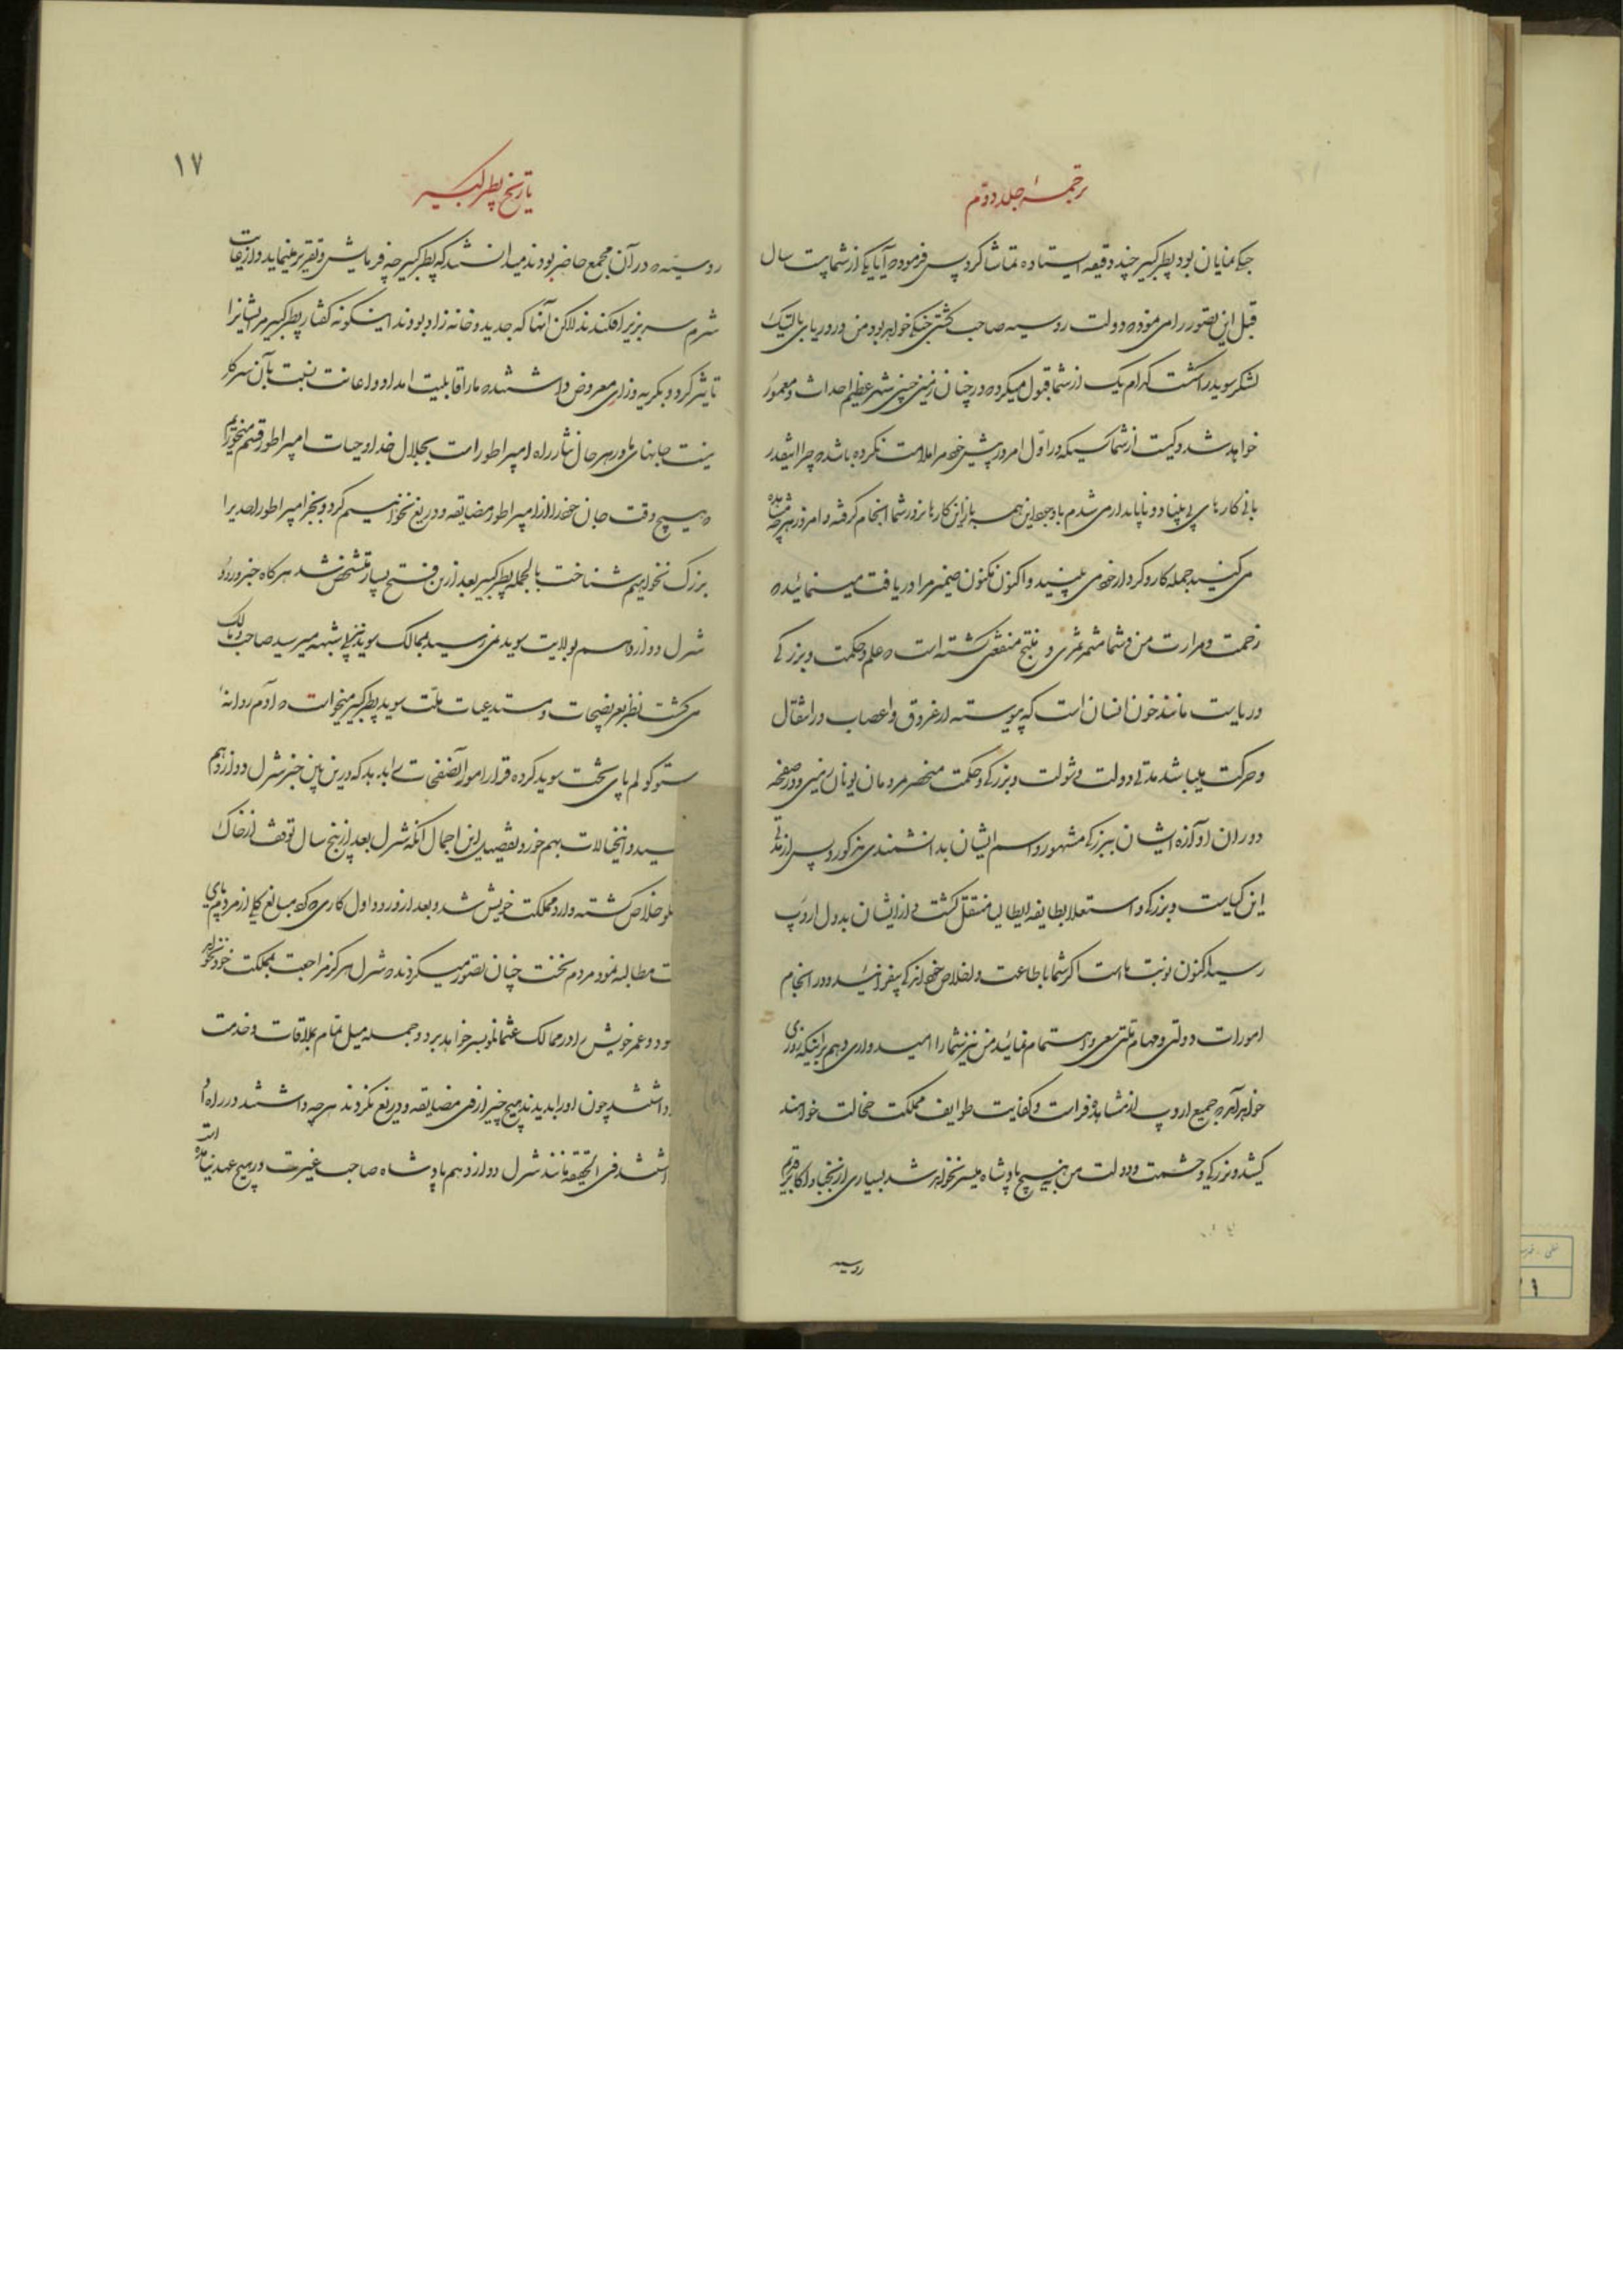 ترجمهٔ جلد دوّم
جنگی نمایان بود پطر کبیر چند دقیقه ایستاده تماشا کرد پس فرمود که آیا یکی از شما بیست سال
قبل این تصور را می نمود که دولت روسیه صاحب کشتی جنگی خواهد بود من در دریای بالتیک
لشکر سوید را شکست کدام یک از شما قبول میکرد که در چنان زمینی چنین شهر عظیم احداث و معمور
خواهد شد و کیست از شما کسیکه در اوّل امر در پیش خود مرا ملامت نکرده باشد که چرا اینقدر
بانی کارهای بی بنیاد و ناپایدار می شدم باوجود این همه باز این کارها بزور شما انجام گرفته و امروز هرچه مشاهده
می کنید جمله کار و کردار خود می بینید و اکنون مکنون ضمیر مرا دریافت مینمائید که
زحمت و مرارت من و شما مثمر ثمری و منتج منفعتی گشته است که علم و حکمت و بزرگی
و ریاست مانند خون انسان است که پیوسته در عروق و اعصاب در انتقال
و حرکت میباشد مدتی دولت و شوکت و بزرگی و حکمت منحصر مردمان یونان زمین و در صفحه
دوران آوازه ایشان ببزرگی مشهور و اسم ایشان بدانشمندی مذکور و پس از مدتی
این کیاست و بزرگی و استعلا بطایفه ایطالیا منتقل گشت و از ایشان بدول اروپ
رسید اکنون نوبت ماست اگر شما باطاعت و اخلاص خود اندکی بیفزائید و در انجام
امورات دولتی و مهام ملتی سعی و اهتمام نمائید من نیز شما را امیدواری دهم بر اینکه روزی
خواهد آمد که جمیع اروپ از مشاهده فراست و کفایت طوایف مملکت خجالت خواهند
کشید و بزرگی و حشمت و دولت من بهیچ پادشاه میسر نخواهد شد بسیاری از نجبا و اکابر قدیم
روسیه
۱۷
تاریخ پطر کبیر
روسیه که در آن مجمع حاضر بودند میدانستند که پطر کبیر چه فرمایش و تقریر مینماید و از غایت
شرم سر بزیر افکندند لاکن آنها که جدید و خانه زاد بودند اینگونه گفتار پطر کبیر مر ایشانرا
تاثیر کرد و بگریه و زاری معروض داشتند که ما را قابلیت امداد و اعانت نسبت بآن سرکار
نیست جانهای ما در هر حال نثار راه امپراطور است بجلال خدا و حیات امپراطور قسم میخوریم
که هیچ وقت جان خود را از امپراطور مضایقه و دریغ نخواهیم کرد و بجز امپراطور احدیرا
بزرگ نخواهیم شناخت بالجمله پطر کبیر بعد ازین فتح بسیار متشخص شد هرگاه خبر ورود
شرل دوازدهم بولایت سوید نمی رسید بممالک سوید نیز بلاشبهه میرسید صاحب و مالک
می گشت نظر بعریضجات و مستدعیات ملّت سوید پطر کبیر میخواست که آدم روانهٔ
ستوکولم پای تخت سوید کرده قرار امور آنصفحات بدهد که درین بین خبر شرل دوازدهم
سید و آنخیالات بهم خورد تفصیل این اجمال آنکه شرل بعد از پنج سال توقف از خاک
خلاص گشته وارد مملکت خویش شد و بعد از ورود اول کاری که کرد مبالغ کلی از مردم
ت مطالبه نمود مردم تخت چنان تصور میکردند که شرل هرگز مراجعت بمملکت خود نخواهد
ود و عمر خویش را در ممالک عثمانلو بسر خواهد برد و جمله میل تمام بملاقات و خدمت
داشتند چون او را بدیدند هیچ چیز از وی مضایقه و دریغ نکردند هرچه داشتند در راه او
اشتند فی الحقیقه مانند شرل دوازدهم پادشاه صاحب غیرت در هیچ عهد نیامده است